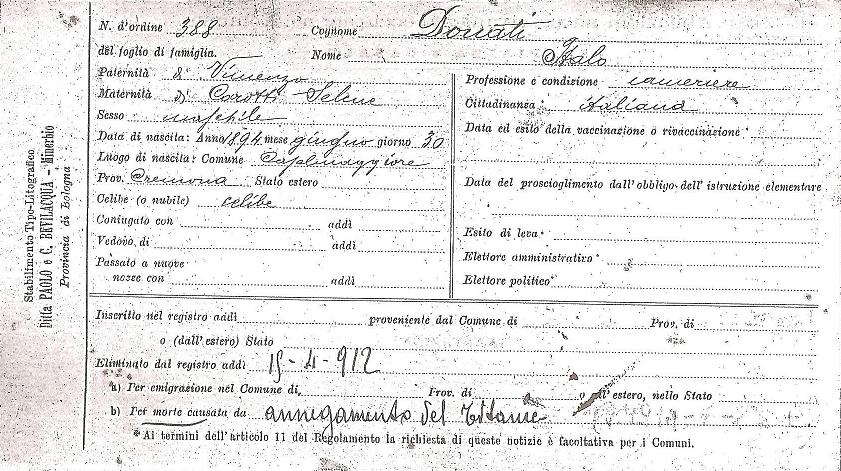 N. d'ordine 388 Cognome Donati
del foglio di famiglia. Nome Italo
Paternità di Vincenzo
Maternità di Corotti Selene
Sesso maschile
Data di nascita: Anno 1894 mese giugno giorno 30
Luogo di nascita: Comune Casalmaggiore
Prov. Cremona Stato estero
Celibe (o nubile) celibe
Coniugato con addì
Vedovo di addì
Passato a nuove
nozze con addì
Professione e condizione: cameriere
Cittadinanza: italiana
Data ed esito della vaccinazione o rivaccinazione*
Data del proscioglimento dall'obbligo dell'istruzione elementare
Esito di leva*
Elettore amministrativo*
Elettore politico*
Inscritto nel registro addì proveniente dal Comune di Prov. di
o (dall'estero) Stato
Eliminato dal registro addì 15-4-912
a) Per emigrazione nel Comune di Prov. di o all'estero, nello Stato
b) Per morte causata da annegamento del Titanic
*Ai termini dell'articolo 11 del Regolamento la richiesta di queste notizie è facoltativa per i Comuni.
Stabilimento Tipo-Litografico
Ditta PAOLO e C. BEVILACQUA - Minerbio
Provincia di Bologna